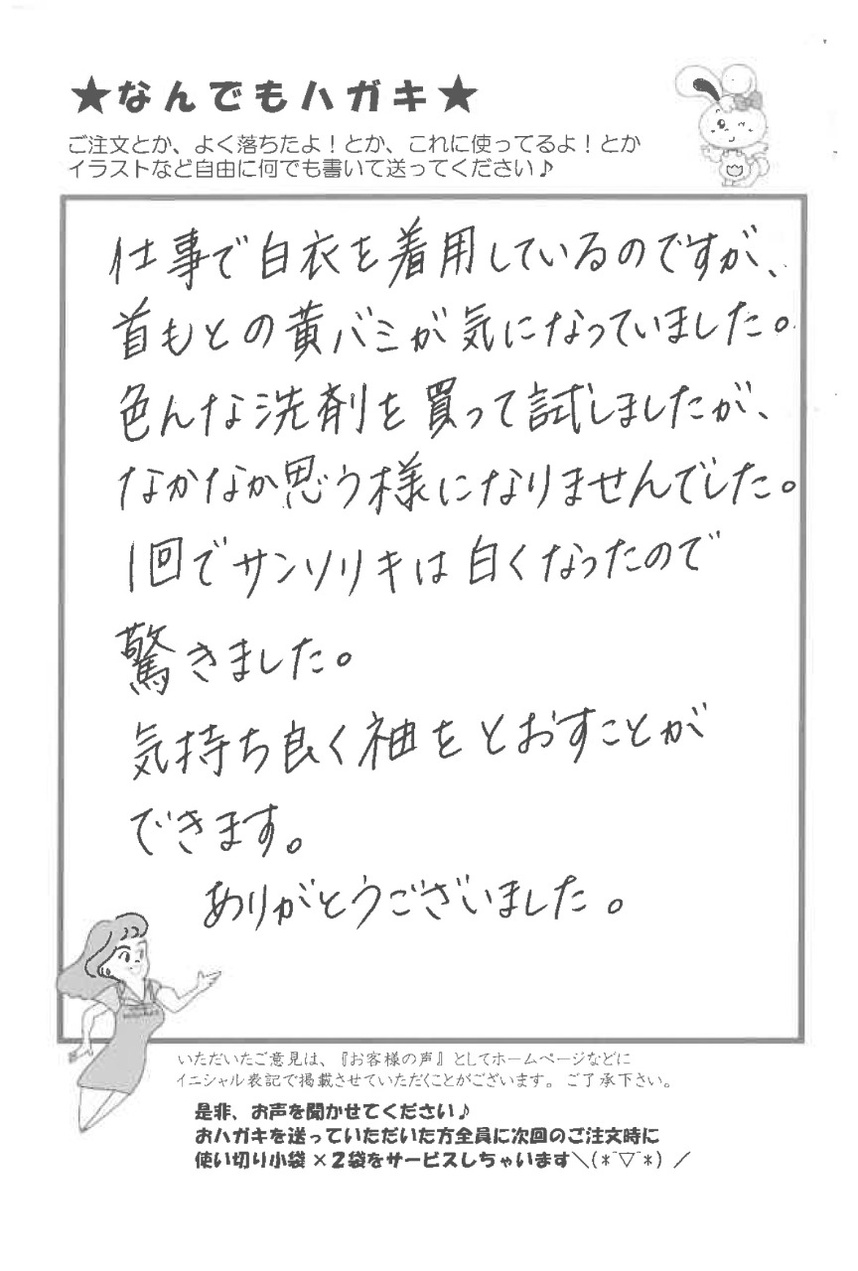 ★なんでもハガキ★
ご注文とか、よく落ちたよ！とか、これに使ってるよ！とか
イラストなど自由に何でも書いて送ってください♪
仕事で白衣を着用しているのですが、
首もとの黄バミが気になっていました。
色んな洗剤を買って試しましたが、
なかなか思う様になりませんでした。
1回でサンソリキは白くなったので
驚きました。
気持ち良く袖をとおすことが
できます。
ありがとうございました。
いただいたご意見は、『お客様の声』としてホームページなどに
イニシャル表記で掲載させていただくことがございます。ご了承下さい。
是非、お声を聞かせてください♪
おハガキを送っていただいた方全員に次回のご注文時に
使い切り小袋×2袋をサービスしちゃいます＼(*¯▽¯*)／